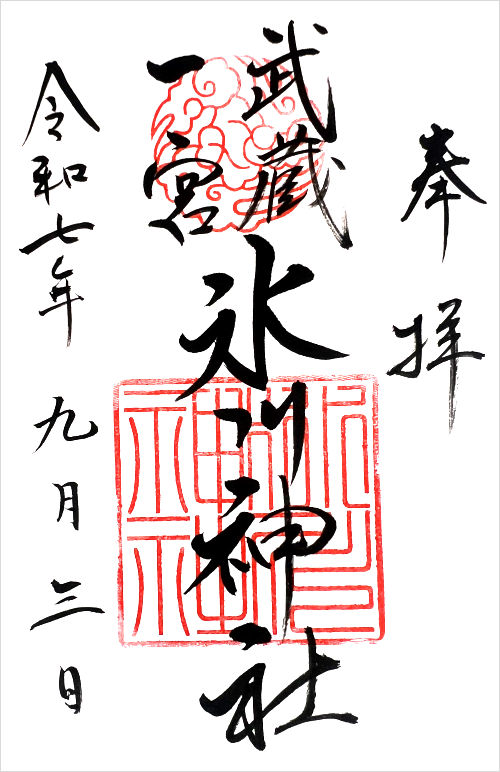 奉拝
武蔵
一宮
氷川神社
令和七年 九月 三日